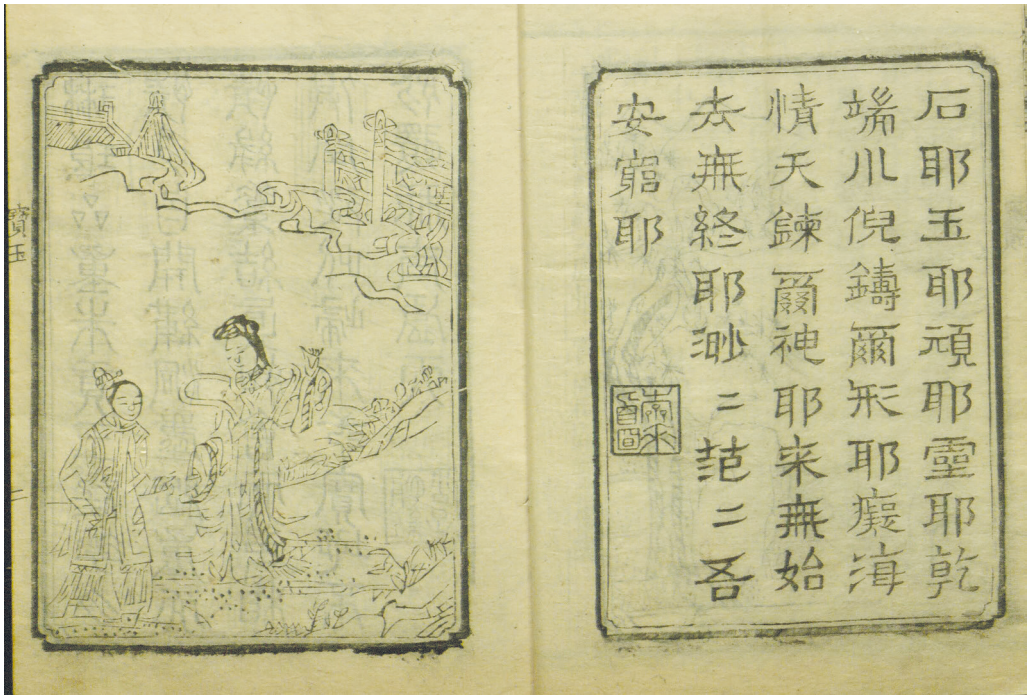 石耶玉耶頑耶靈耶乾
端川倪鑄爾形耶癡海
情天鍊爾神耶来無始
去無終耶渺二范二吾
安窮耶
寶玉
二